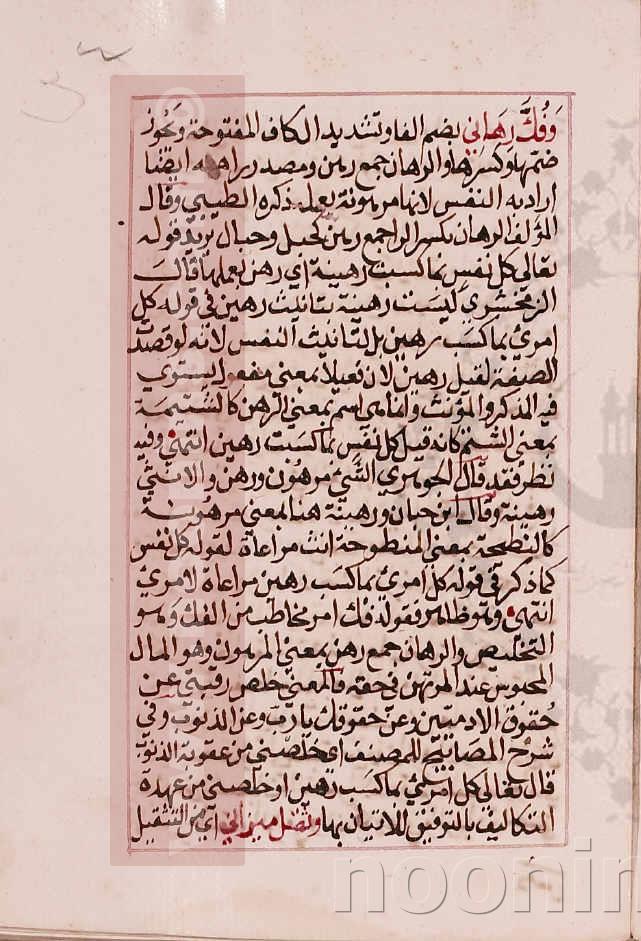 وَفُكَّ رِهَاني بضم الفا وتشديد الكاف المفتوحة ويجوز
ضمها وكسرها والرهان جمع رهن ومصدر راهنه ايضا
اراد به النفس لانها مرهونة بعمله ذكره الطيبي وقال
المؤلف الرهان بكسر الراجمع رهن كحبل وحبال يريد قوله
تعالى كل نفس بما كسبت رهينة اي رهن بعملها قال
الزمخشري ليست رهينة بتانيث رهين في قوله كل
امرئ بما كسب رهين بل لتانيث النفس لانه لو قصدت
الصفة لقيل رهين لان فعيلا بمعنى مفعول يستوي
فيه المذكر والمؤنث وانما هي اسم بمعنى الرهن كالشتيمة
بمعنى الشتم كانه قيل كل نفس بما كسبت رهين انتهى وفيه
نظر فقد قال الجوهري الشئ مرهون ورهن والانثى
رهينة وقال ابن حبان ورهينة هنا بمعنى مرهونة
كالنطيحة بمعنى المنطوحة انث مراعاة لقوله كل نفس
كما ذكر في قوله كل امرئ بما كسب رهين مراعاة لامرئ
انتهى وهو ظاهر فقوله فك امر مخاطب من الفك وهو
التخليص والرهان جمع رهن بمعنى المرهون وهو المال
المحبوس عند المرتهن في حقه فالمعنى خلص رقبتي عن
حُقوق الادميين وعن حقوقك يا رب وعن الذنوب وفي
شرح المصابيح للمصنف اي خلصني من عقوبة الذنوب
قال تعالى كل امرئ بما كسب رهين او خلصني من عهدة
التكاليف بالتوفيق للاتيان بها وثقل ميزاني اي من التثقيل
noorin